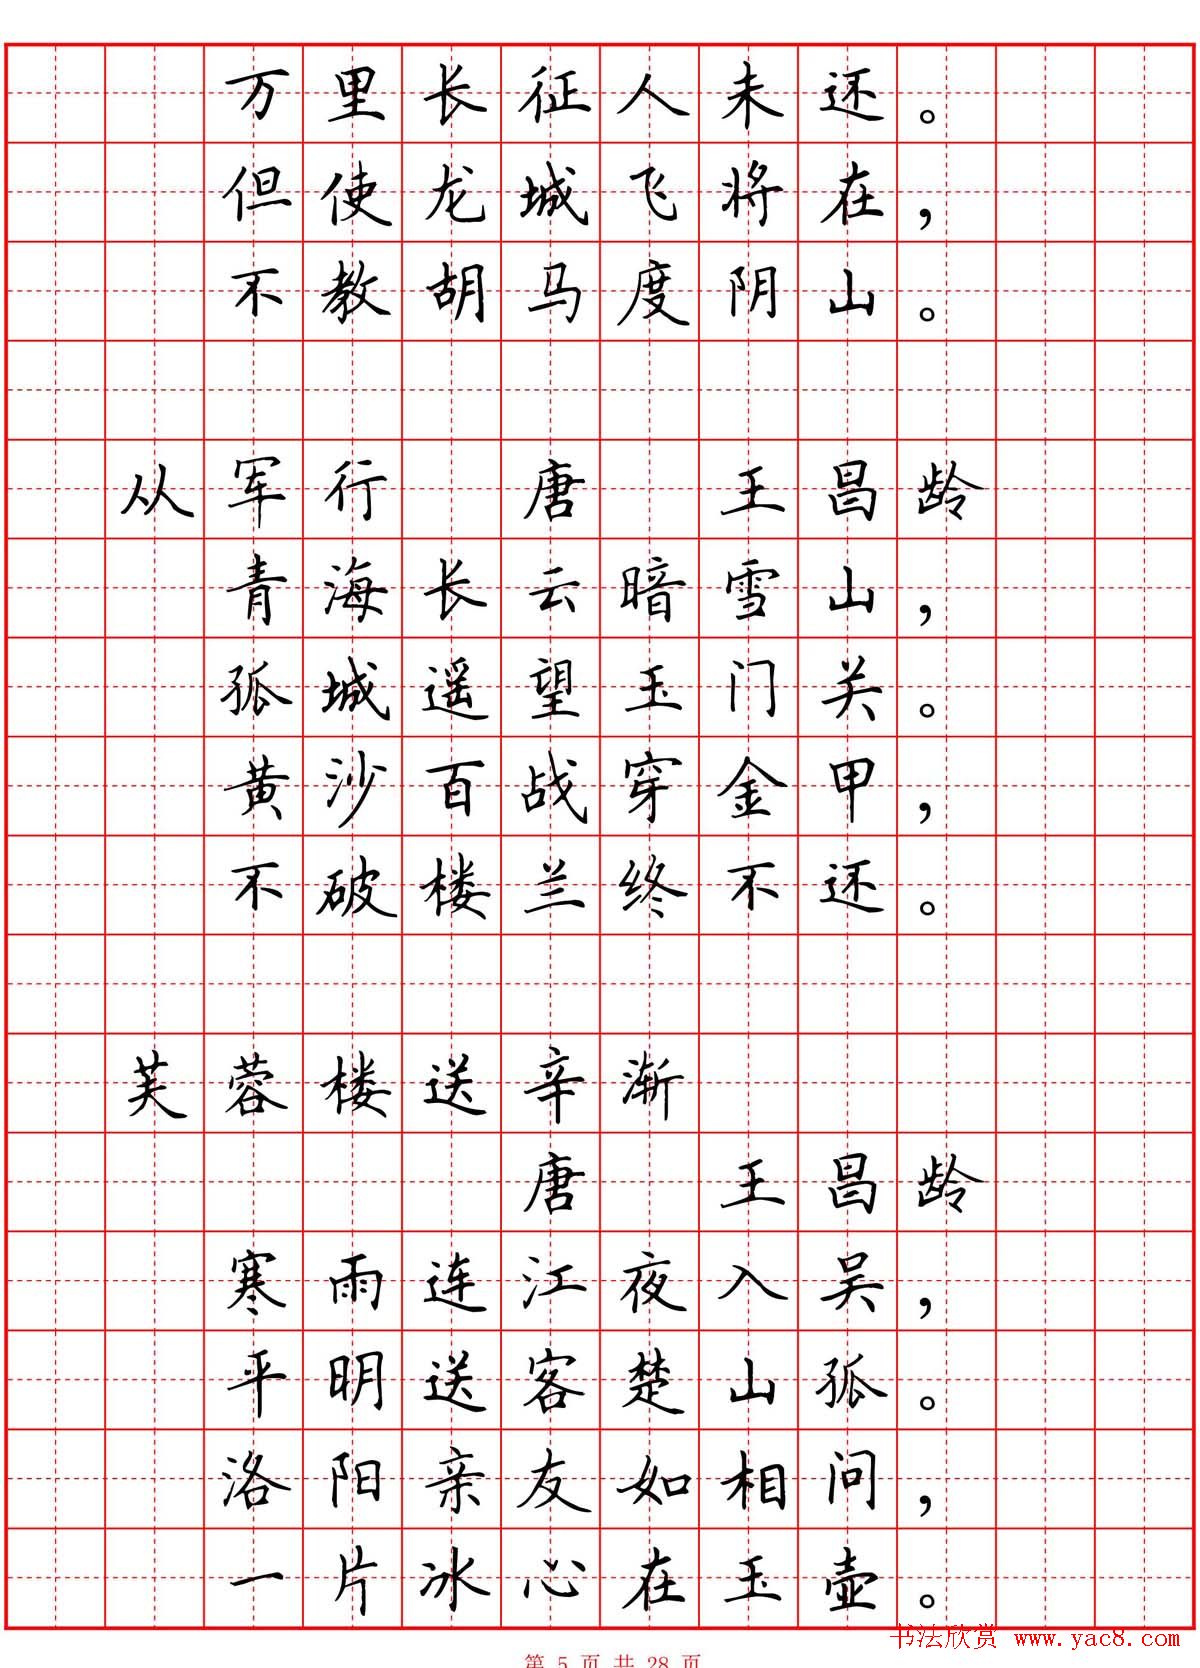 万里长征人未还。
但使龙城飞将在，
不教胡马度阴山。
从军行 唐 王昌龄
青海长云暗雪山，
孤城遥望玉门关。
黄沙百战穿金甲，
不破楼兰终不还。
芙蓉楼送辛渐
唐 王昌龄
寒雨连江夜入吴，
平明送客楚山孤。
洛阳亲友如相问，
一片冰心在玉壶。
书法欣赏 www.yac8.com
第 5 页 共 28 页